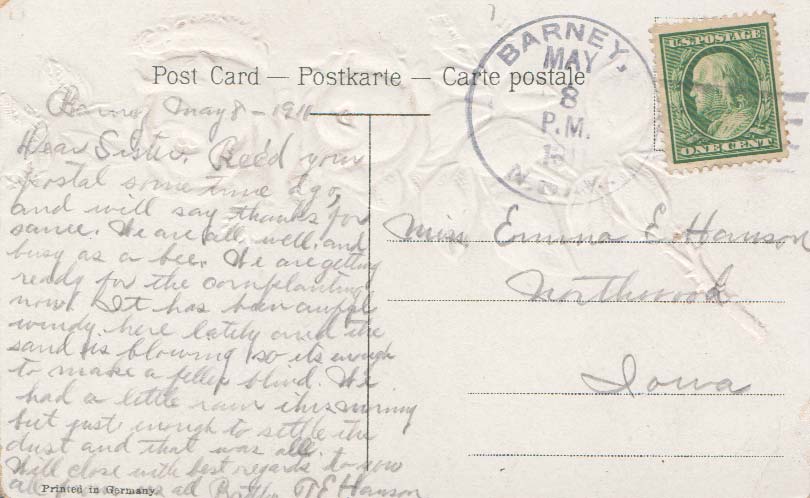 Post Card — Postkarte — Carte postale
BARNEY,
MAY
8
P.M.
N. DAK.
U.S. POSTAGE
ONE CENT
Barney May 8 - 1911
Dear Sister. Rec'd your
postal some time ago,
and will say thanks for
same. We are all well and
busy as a bee. We are getting
ready for the cornplanting
now. It has been awful
windy here lately and the
sand is blowing so its enough
to make a feller blind. We
had a little rain this morning
but just enough to settle the
dust and that was all.
Will close with best regards to you
all from us all Brother Hanson
Miss Emma E Hanson
Northwood
Iowa
Printed in Germany.